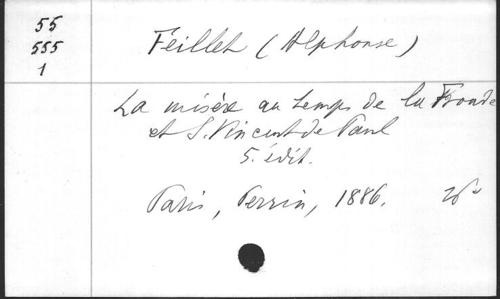 55
555
1
Feillet (Alphonse)
La misère au temps de la Fronde
et S. Vincent de Paul
5. édit.
Paris, Perrin, 1886.